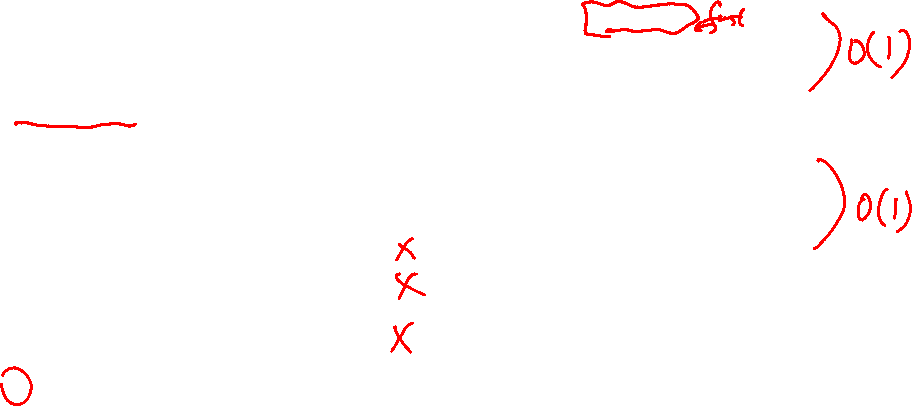 fast
O(1)
O(1)
x
x
x